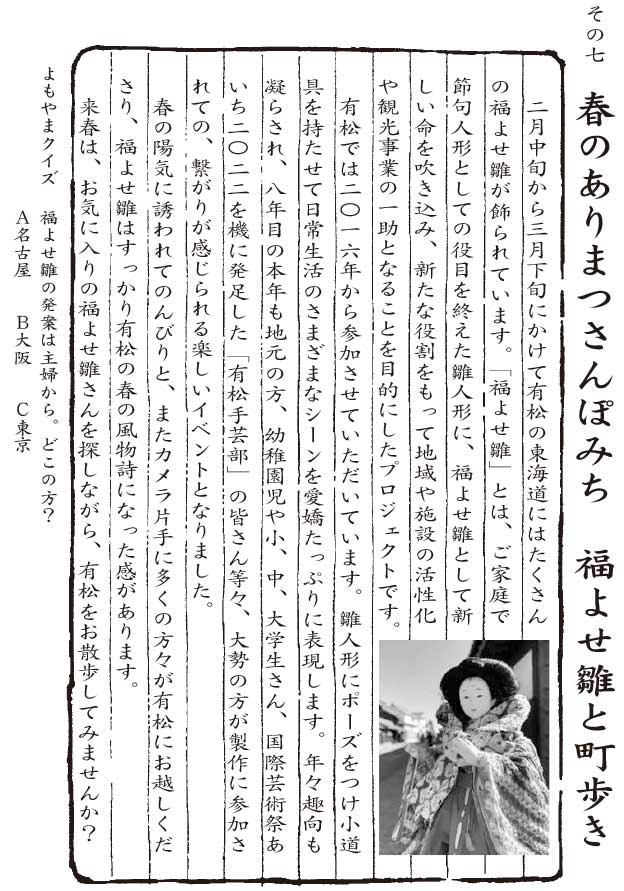 その七
春のありまつさんぽみち　福よせ雛と町歩き
二月中旬から三月下旬にかけて有松の東海道にはたくさん
の福よせ雛が飾られています。「福よせ雛」とは、ご家庭で
節句人形としての役目を終えた雛人形に、福よせ雛として新
しい命を吹き込み、新たな役割をもって地域や施設の活性化
や観光事業の一助となることを目的にしたプロジェクトです。
有松では二〇一六年から参加させていただいています。雛人形にポーズをつけ小道
具を持たせて日常生活のさまざまなシーンを愛嬌たっぷりに表現します。年々趣向も
凝らされ、八年目の本年も地元の方、幼稚園児や小、中、大学生さん、国際芸術祭あ
いち二〇二二を機に発足した「有松手芸部」の皆さん等々、大勢の方が製作に参加さ
れての、繋がりが感じられる楽しいイベントとなりました。
春の陽気に誘われてのんびりと、またカメラ片手に多くの方々が有松にお越しくだ
さり、福よせ雛はすっかり有松の春の風物詩になった感があります。
来春は、お気に入りの福よせ雛さんを探しながら、有松をお散歩してみませんか？
よもやまクイズ　福よせ雛の発案は主婦から。どこの方？
A名古屋　B大阪　C東京